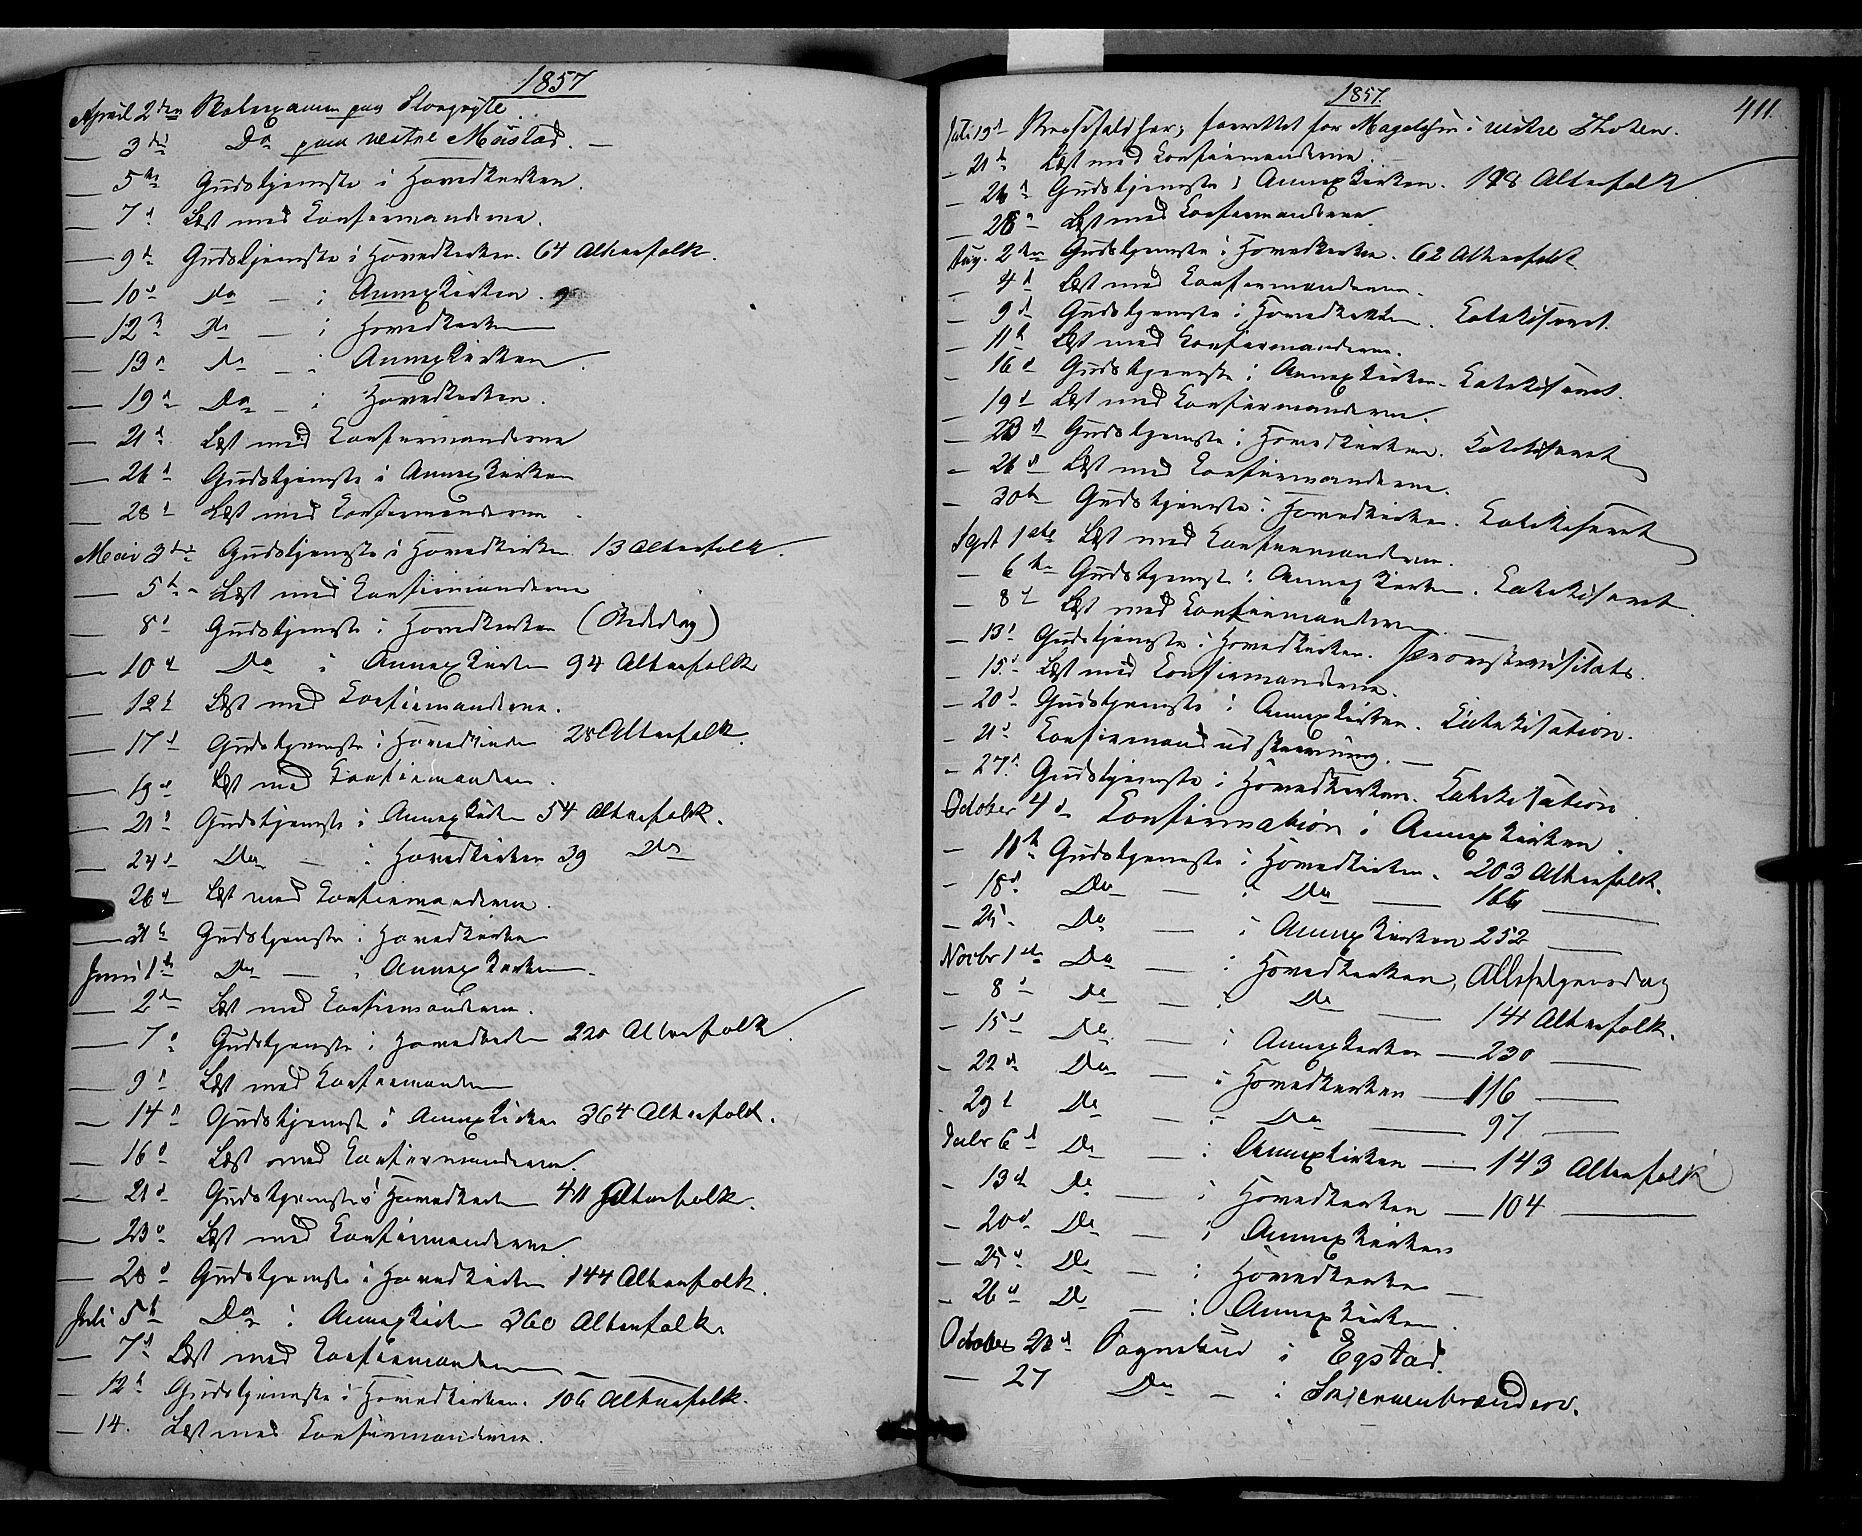 1857
April 2den Skolexamen paa
— 3die Do paa vestre Mustad. —
— 5te Gudstjeneste i Hovedkirken.
— 7d Læst med Confirmanderne.
— 9d Gudstjeneste i Hovedkirken. 64 Altersfolk.
— 10d Do — i Annexkirken.
— 12d Do — i Hovedkirken
— 13d Do — i Annexkirken.
— 19d Do — i Hovedkirken.
— 21d Læst med Confirmanderne
— 26d Gudstjeneste i Annexkirken
— 28d Læst med Confirmanderne
Mai 3die Gudstjeneste i Hovedkirken 13 Altersfolk.
— 5te Læst med Confirmanderne
— 8d Gudstjeneste i Hovedkirken (Bededag)
— 10d Do i Annexkirken 94 Altersfolk
— 12d Læst med Confirmanderne.
— 17d Gudstjeneste i Hovedkirken 28 Altersfolk.
— 19d Læst med Confirmanderne.
— 21d Gudstjeneste i Annexkirken 54 Altersfolk.
— 24d Do — i Hovedkirken 39 Do
— 26d Læst med Confirmanderne.
— 31d Gudstjeneste i Hovedkirken
Juni 1ste Do — i Annexkirken.
— 2den Læst med Confirmanderne.
— 7d Gudstjeneste i Hovedkirken 220 Altersfolk.
— 9d Læst med Confirmanderne
— 14d Gudstjeneste i Annexkirken 364 Altersfolk.
— 16d Læst med Confirmanderne.
— 21d Gudstjeneste i Hovedkirken 411 Altersfolk.
— 23d Læst med Confirmanderne.
— 28d Gudstjeneste i Hovedkirken 144 Altersfolk.
Juli 5te Do i Annexkirken 360 Altersfolk
— 7d Læst med Confirmanderne
— 12d Gudstjeneste i Hovedkirken. 106 Altersfolk.
— 14. Læst med Confirmanderne.
1857.
411.
Juli 19d forrettet for Magelssen i vestre Thoten.
— 21d Læst med Confirmanderne.
— 26d Gudstjeneste i Annexkirken. 198 Altersfolk
— 28d Læst med Confirmanderne
Aug. 2den Gudstjeneste i Hovedkirken. 62 Altersfolk
— 4d Læst med Confirmanderne.
— 9d Gudstjeneste i Hovedkirken. Catekiseret.
— 11d Læst med Confirmanderne.
— 16d Gudstjeneste i Annexkirken. Catekiseret.
— 19d Læst med Confirmanderne.
— 23d Gudstjeneste i Hovedkirken. Catekiseret
— 26d Læst med Confirmanderne.
— 30te Gudstjeneste i Hovedkirken. Catekiseret
Sept 1ste Læst med Confirmanderne.
— 6te Gudstjeneste i Annexkirken. Catekiseret.
— 8d Læst med Confirmanderne. —
— 13d Gudstjeneste i Hovedkirken. Provstevisitats.
— 15d Læst med Confirmanderne.
— 20d Gudstjeneste i Annexkirken. Catekisation.
— 21d Confirmandudskrivning. —
— 27d Gudstjeneste i Hovedkirken. Catekisation
October 4d Confirmation i Annexkirken.
— 11te Gudstjeneste i Hovedkirken. 203 Altersfolk.
— 18d Do — i Do — 166 —
— 25d Do — i Annexkirken 252 —
Novbr 1ste Do — i Hovedkirken, Allehelgensdag
— 8d Do — i Do — 141 Altersfolk.
— 15d Do — i Annexkirken — 230 —
— 22d Do — i Hovedkirken — 116 —
— 29d Do — i Do — 97 —
Decbr 6d Do — i Annexkirken — 143 Altersfolk
— 13d Do — i Hovedkirken — 104 —
— 20d Do — i Annexkirken
— 25d Do — i Hovedkirken —
— 26d Do — i Annexkirken.
October 20d Sognebud i Egstad.
— 27 Do — i